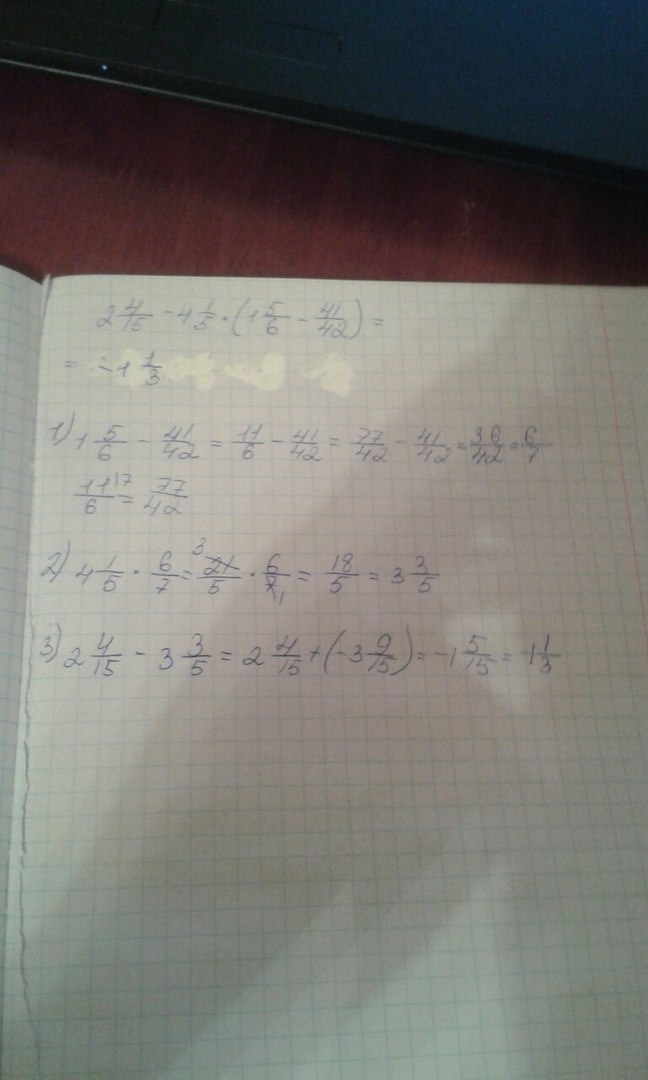 2 4/15 - 4 1/5 · (1 5/6 - 41/42) =
= -1 1/3
1) 1 5/6 - 41/42 = 11/6 - 41/42 = 77/42 - 41/42 = 36/42 = 6/7
11/6 \7 = 77/42
2) 4 1/5 · 6/7 = 21/5 3 · 6/7 1 = 18/5 = 3 3/5
3) 2 4/15 - 3 3/5 = 2 4/15 + (-3 9/15) = -1 5/15 = -1 1/3